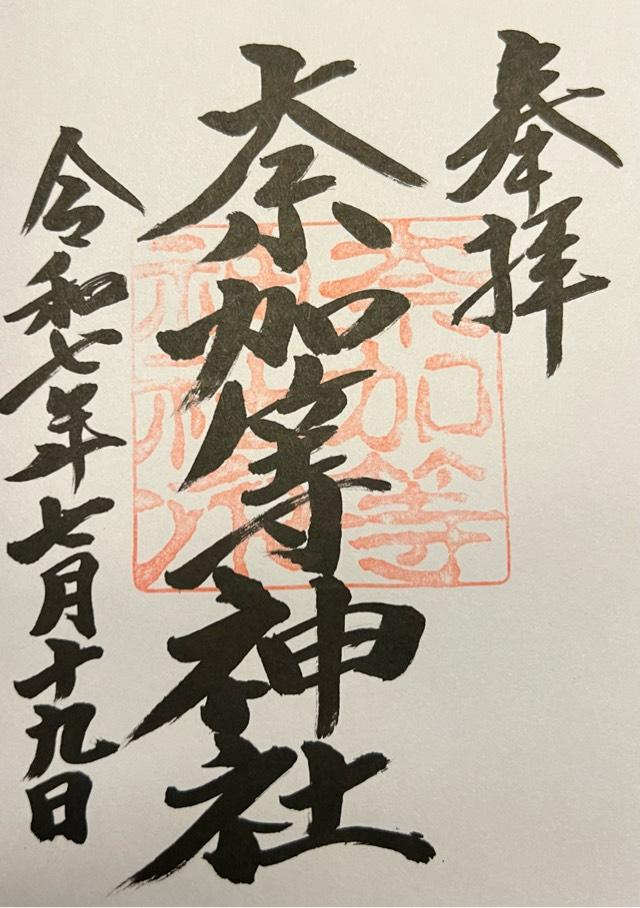 奉拝
奈加等神社
令和七年七月十九日
奈加等
神社